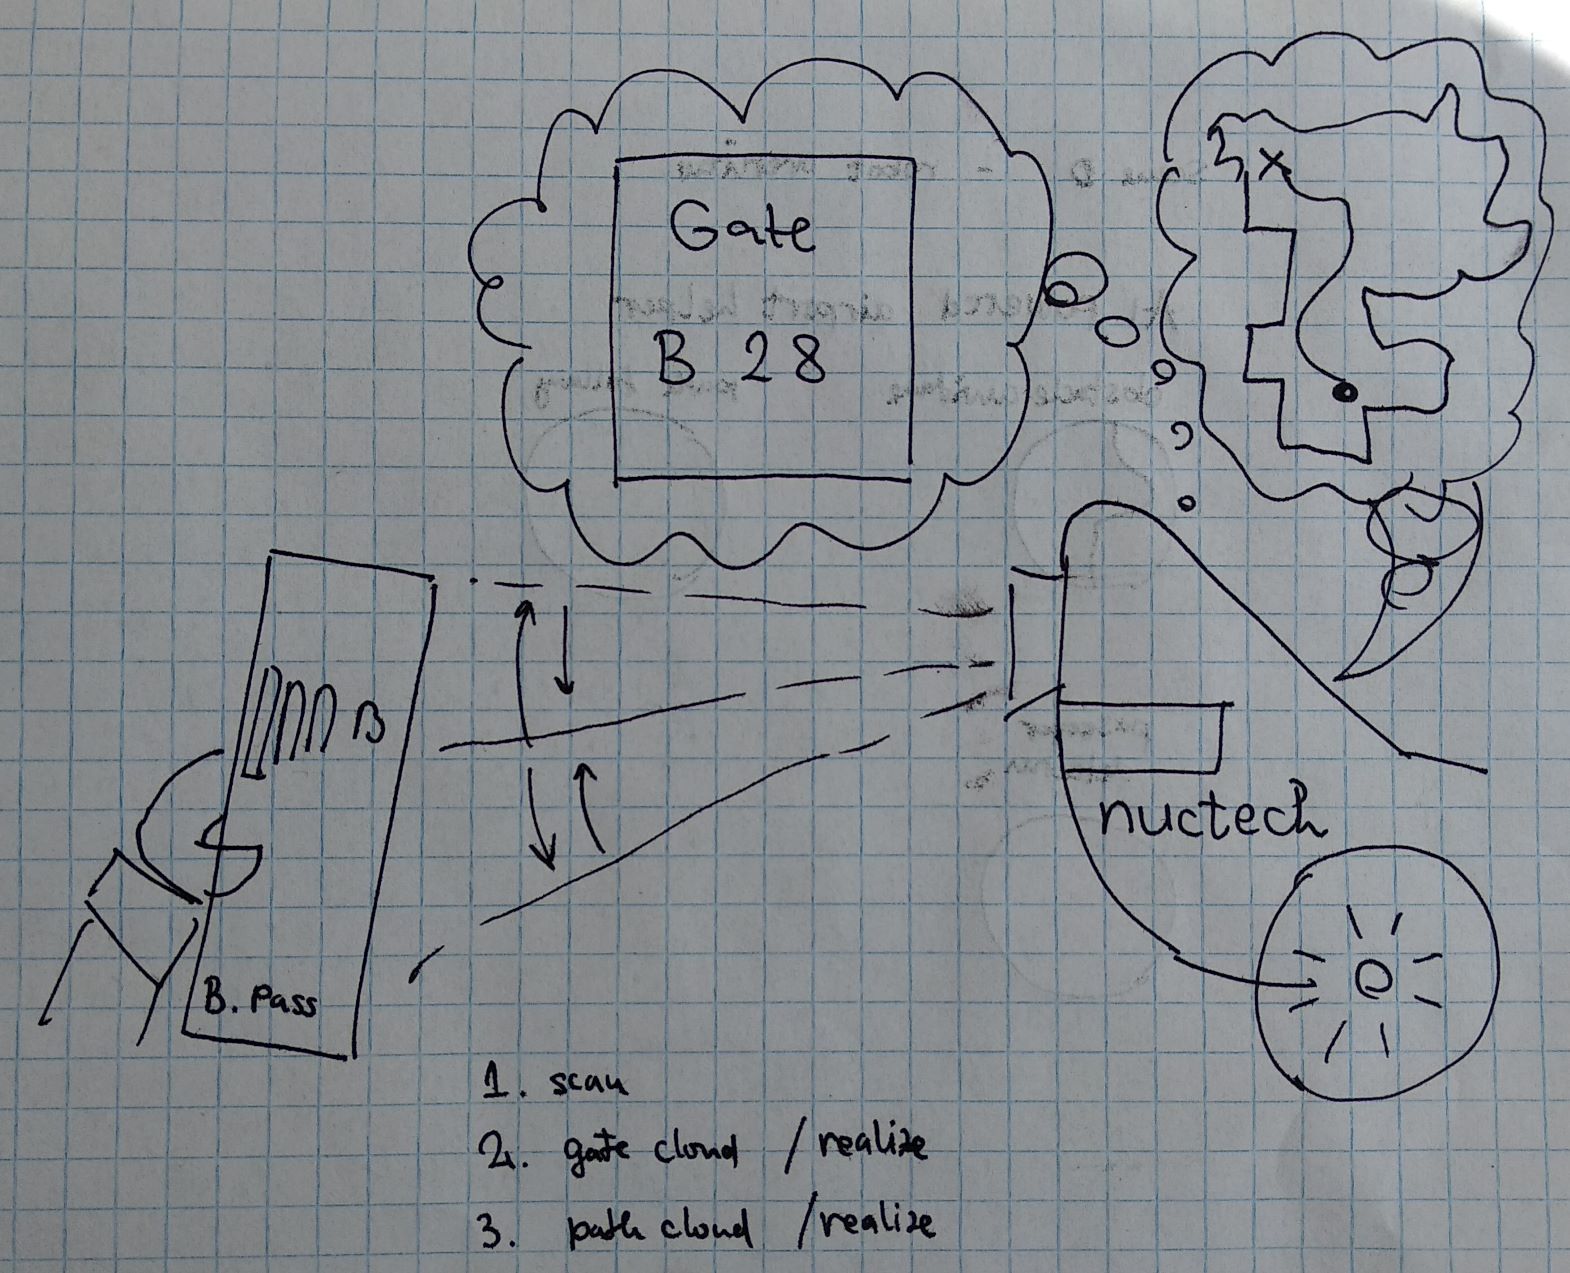 Gate
B 28
B
nuctech
B. Pass
1. scan
2. gate cloud / realize
3. path cloud / realize